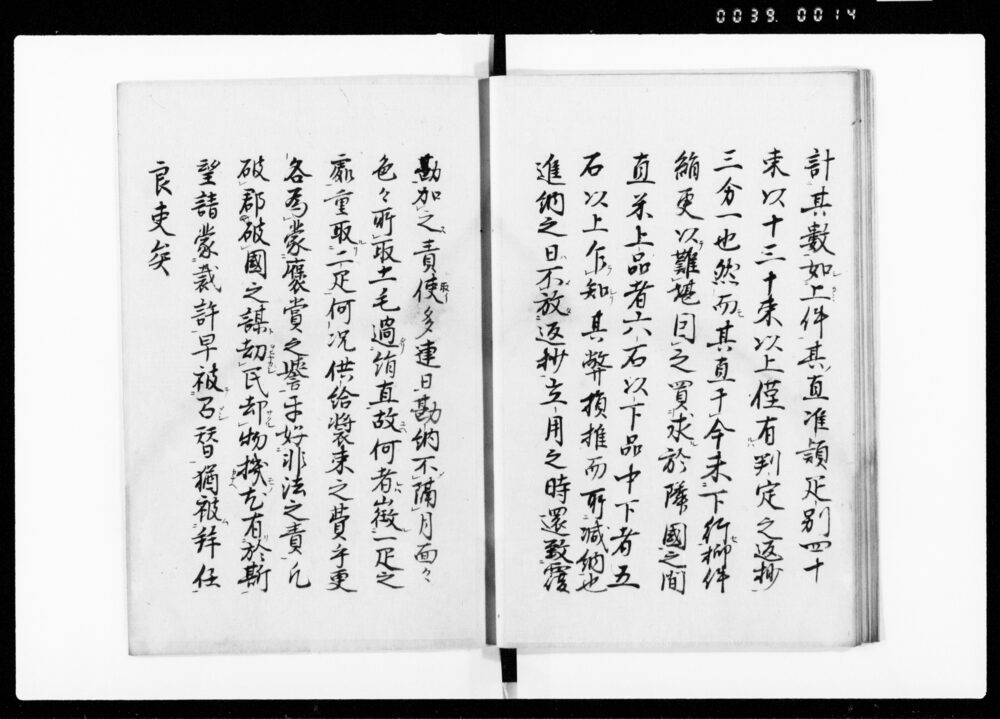 0039.0014
計其數如上件其直准穎疋別四十
束以十三十束以上僅有判定之返抄
三分一也然而其直于今未下行抑件
絹更以難堪因之買求於隣國之間
直米上品者六石以下品中下者五
石以上乍知其弊損推而所減納也
進納之日不放返抄立用之時還致覆
勘加之責使多連日勘納不隔月面々
色々所取土毛過絹直故何者徴一疋之
處重取二疋何况供給裝束之費乎更
各爲蒙褒賞之譽乎好非法之責凢
破郡破國之謀劫民却物機尤有於斯
望請蒙裁許早被
猶被拜任
良吏矣